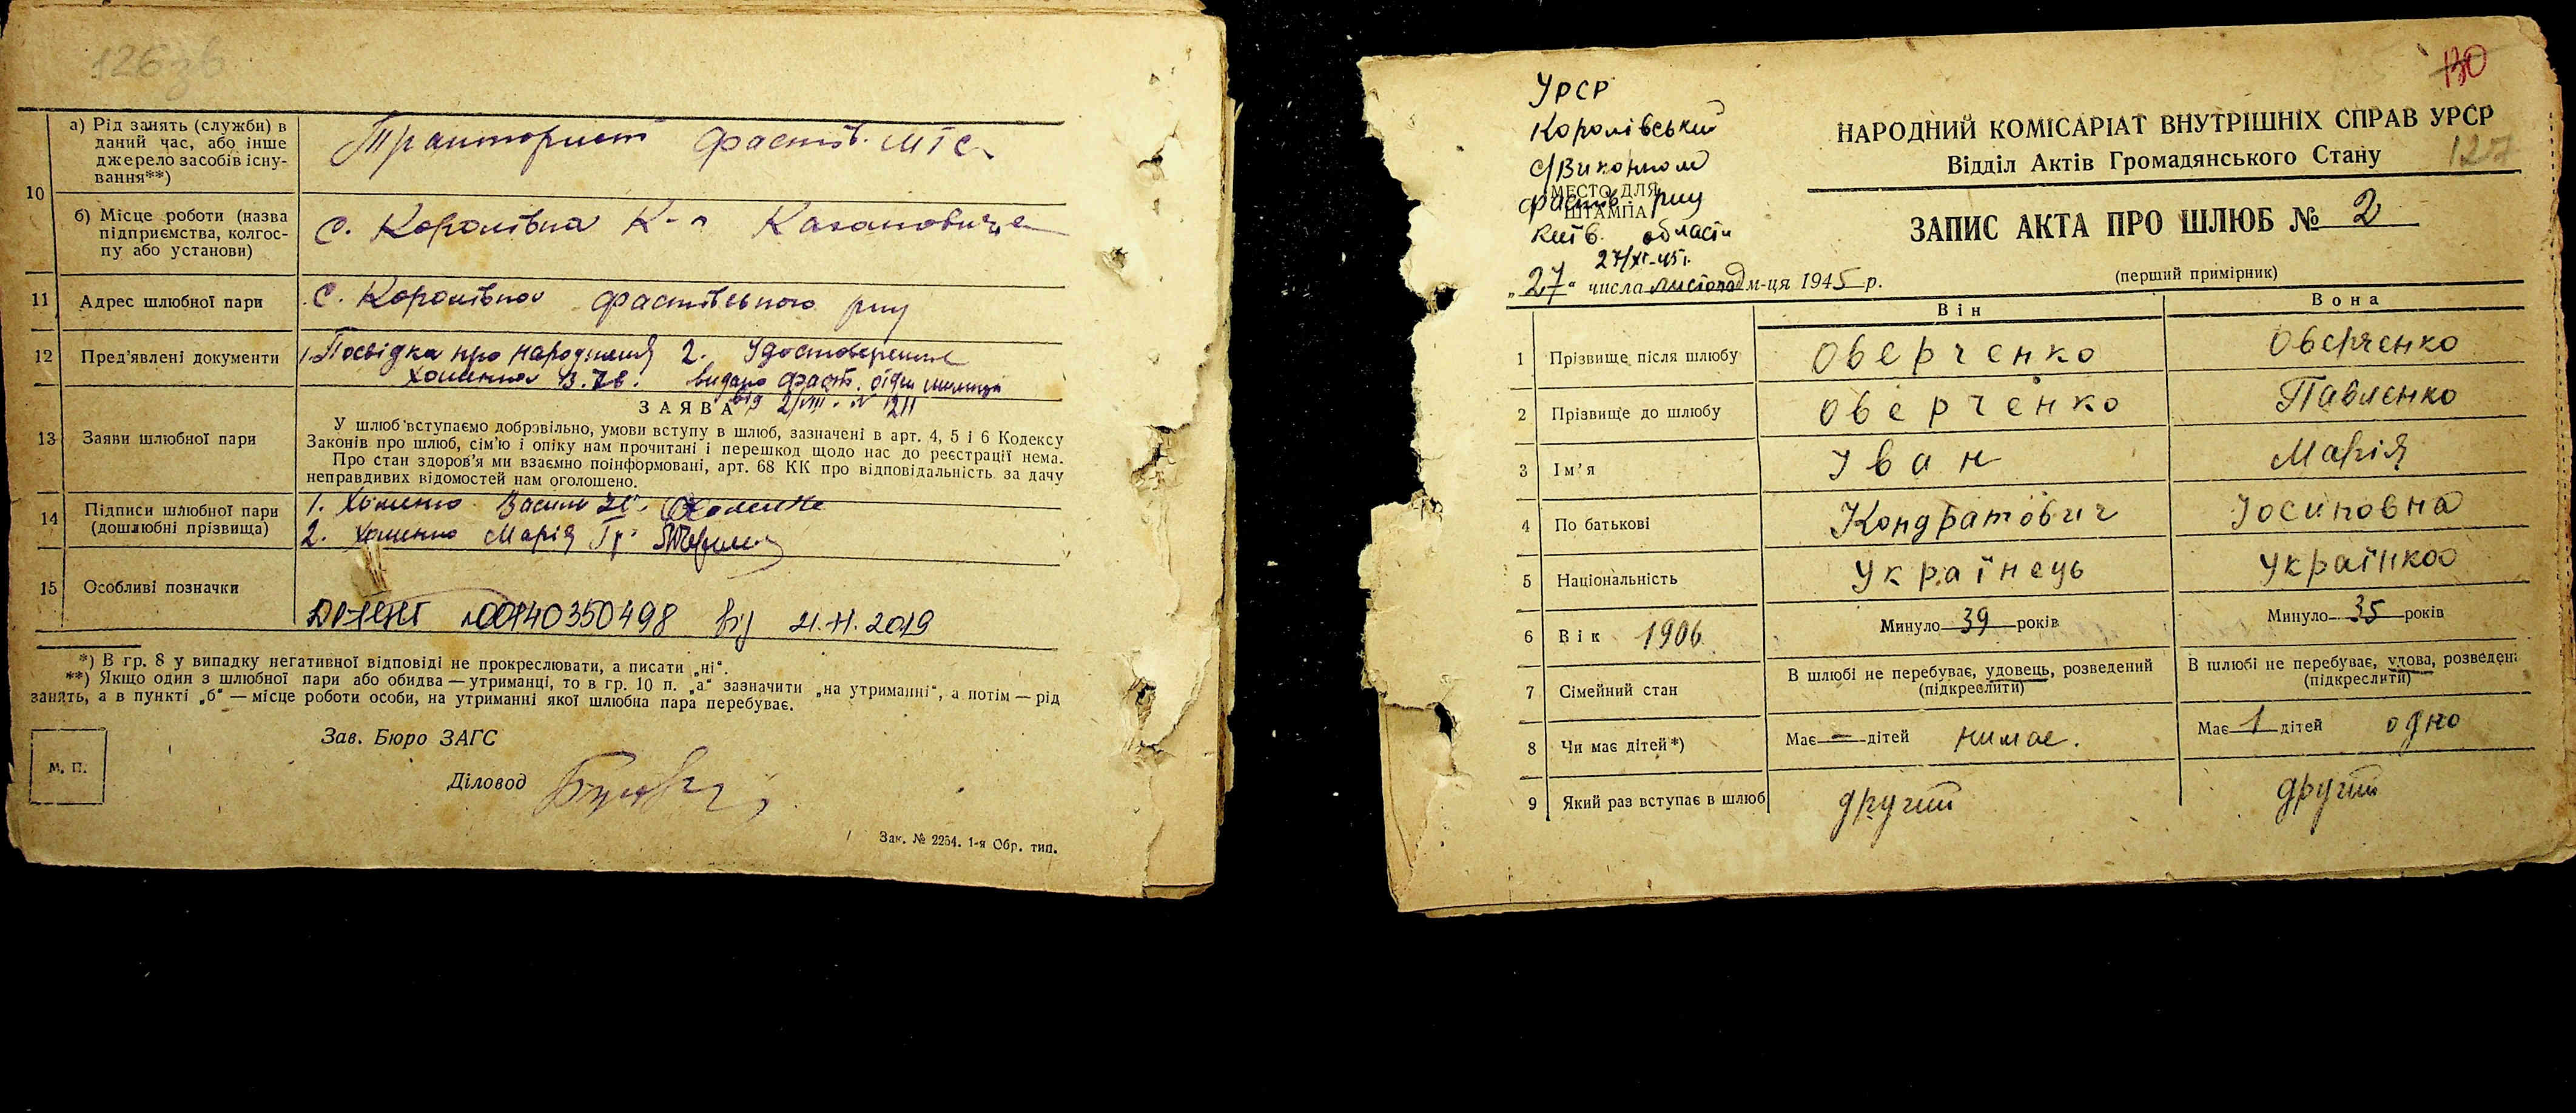 126 зв
10
а) Рід занять (служби) в
даний час, або інше
джерело засобів існу-
вання**)
Тракторист Фастів. МТС
б) Місце роботи (назва
підприємства, колгос-
пу або установи)
с. Королівка К-п Кагановича
11 Адрес шлюбної пари
с. Королівка Фастівського р-ну
12 Пред'явлені документи
1. Посвідка про народження 2. Удостоверение
Хоменка В. Ів. видано Фаст. відд міліції
від 2/VIII. № 1211
ЗАЯВА
13 Заяви шлюбної пари
У шлюб вступаємо добровільно, умови вступу в шлюб, зазначені в арт. 4, 5 і 6 Кодексу
Законів про шлюб, сім'ю і опіку нам прочитані і перешкод щодо нас до реєстрації нема.
Про стан здоров'я ми взаємно поінформовані, арт. 68 КК про відповідальність за дачу
неправдивих відомостей нам оголошено.
14 Підписи шлюбної пари
(дошлюбні прізвища)
1. Хоменко Василь Ів. Хоменко
2. Хоменко Марія Гр.
15 Особливі позначки
00140350498 від 21.11.2019
*) В гр. 8 у випадку негативної відповіді не прокреслювати, а писати „ні“.
**) Якщо один з шлюбної пари або обидва — утриманці, то в гр. 10 п. „а“ зазначити „на утриманні“, а потім — рід
занять, а в пункті „б“ — місце роботи особи, на утриманні якої шлюбна пара перебуває.
М. П.
Зав. Бюро ЗАГС
Діловод
Зак. № 2254. 1-я Обр. тип.
130
УРСР
Королівський
с/Виконком
МЕСТО ДЛЯ
ШТАМПА
Фастів. р-ну
Київ. області
27/XI-45 г.
„27“ числа листопад м-ця 1945 р.
НАРОДНИЙ КОМІСАРІАТ ВНУТРІШНІХ СПРАВ УРСР
Відділ Актів Громадянського Стану
127
ЗАПИС АКТА ПРО ШЛЮБ № 2
(перший примірник)
Він Вона
1 Прізвище після шлюбу Оверченко Оверченко
2 Прізвище до шлюбу Оверченко Павленко
3 Ім'я Іван Марія
4 По батькові Кондратович Іосиповна
5 Національність Українець Українка
6 Вік 1906 Минуло 39 років Минуло 35 років
7 Сімейний стан В шлюбі не перебуває, удовець, розведений (підкреслити) В шлюбі не перебуває, удова, розведені (підкреслити)
8 Чи має дітей*) Має — дітей нимає. Має 1 дітей одно
9 Який раз вступає в шлюб другий другий